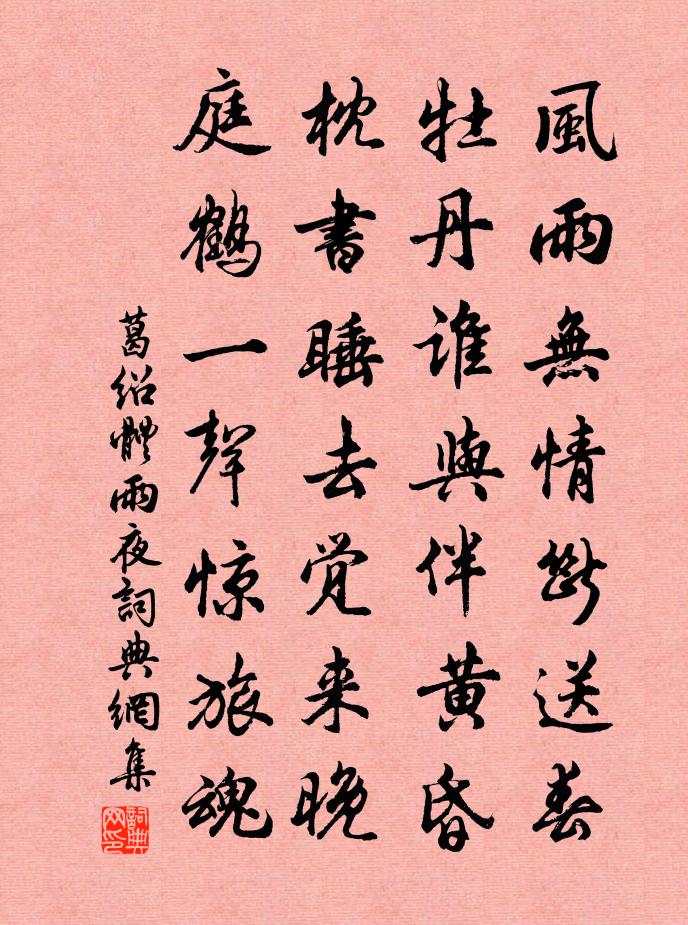 風雨無情斷送春
牡丹誰與伴黄昏
枕書睡去覚来晚
庭鶴一聲惊旅魂
葛紹體雨夜詞典網集
詞典網印